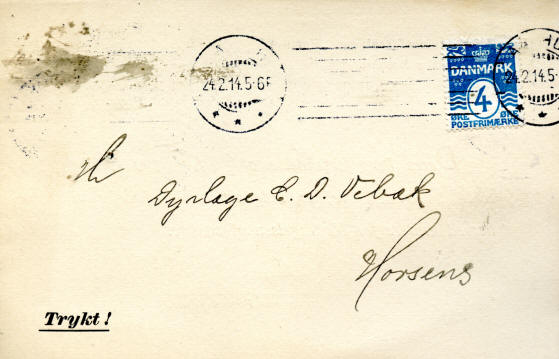 24.2.14.5-6F
24.2.14.5-
DANMARK
4
ØRE ØRE
POSTFRIMÆRKE
Hr
Dyrlæge C. D. Vebæk
Horsens
Trykt!